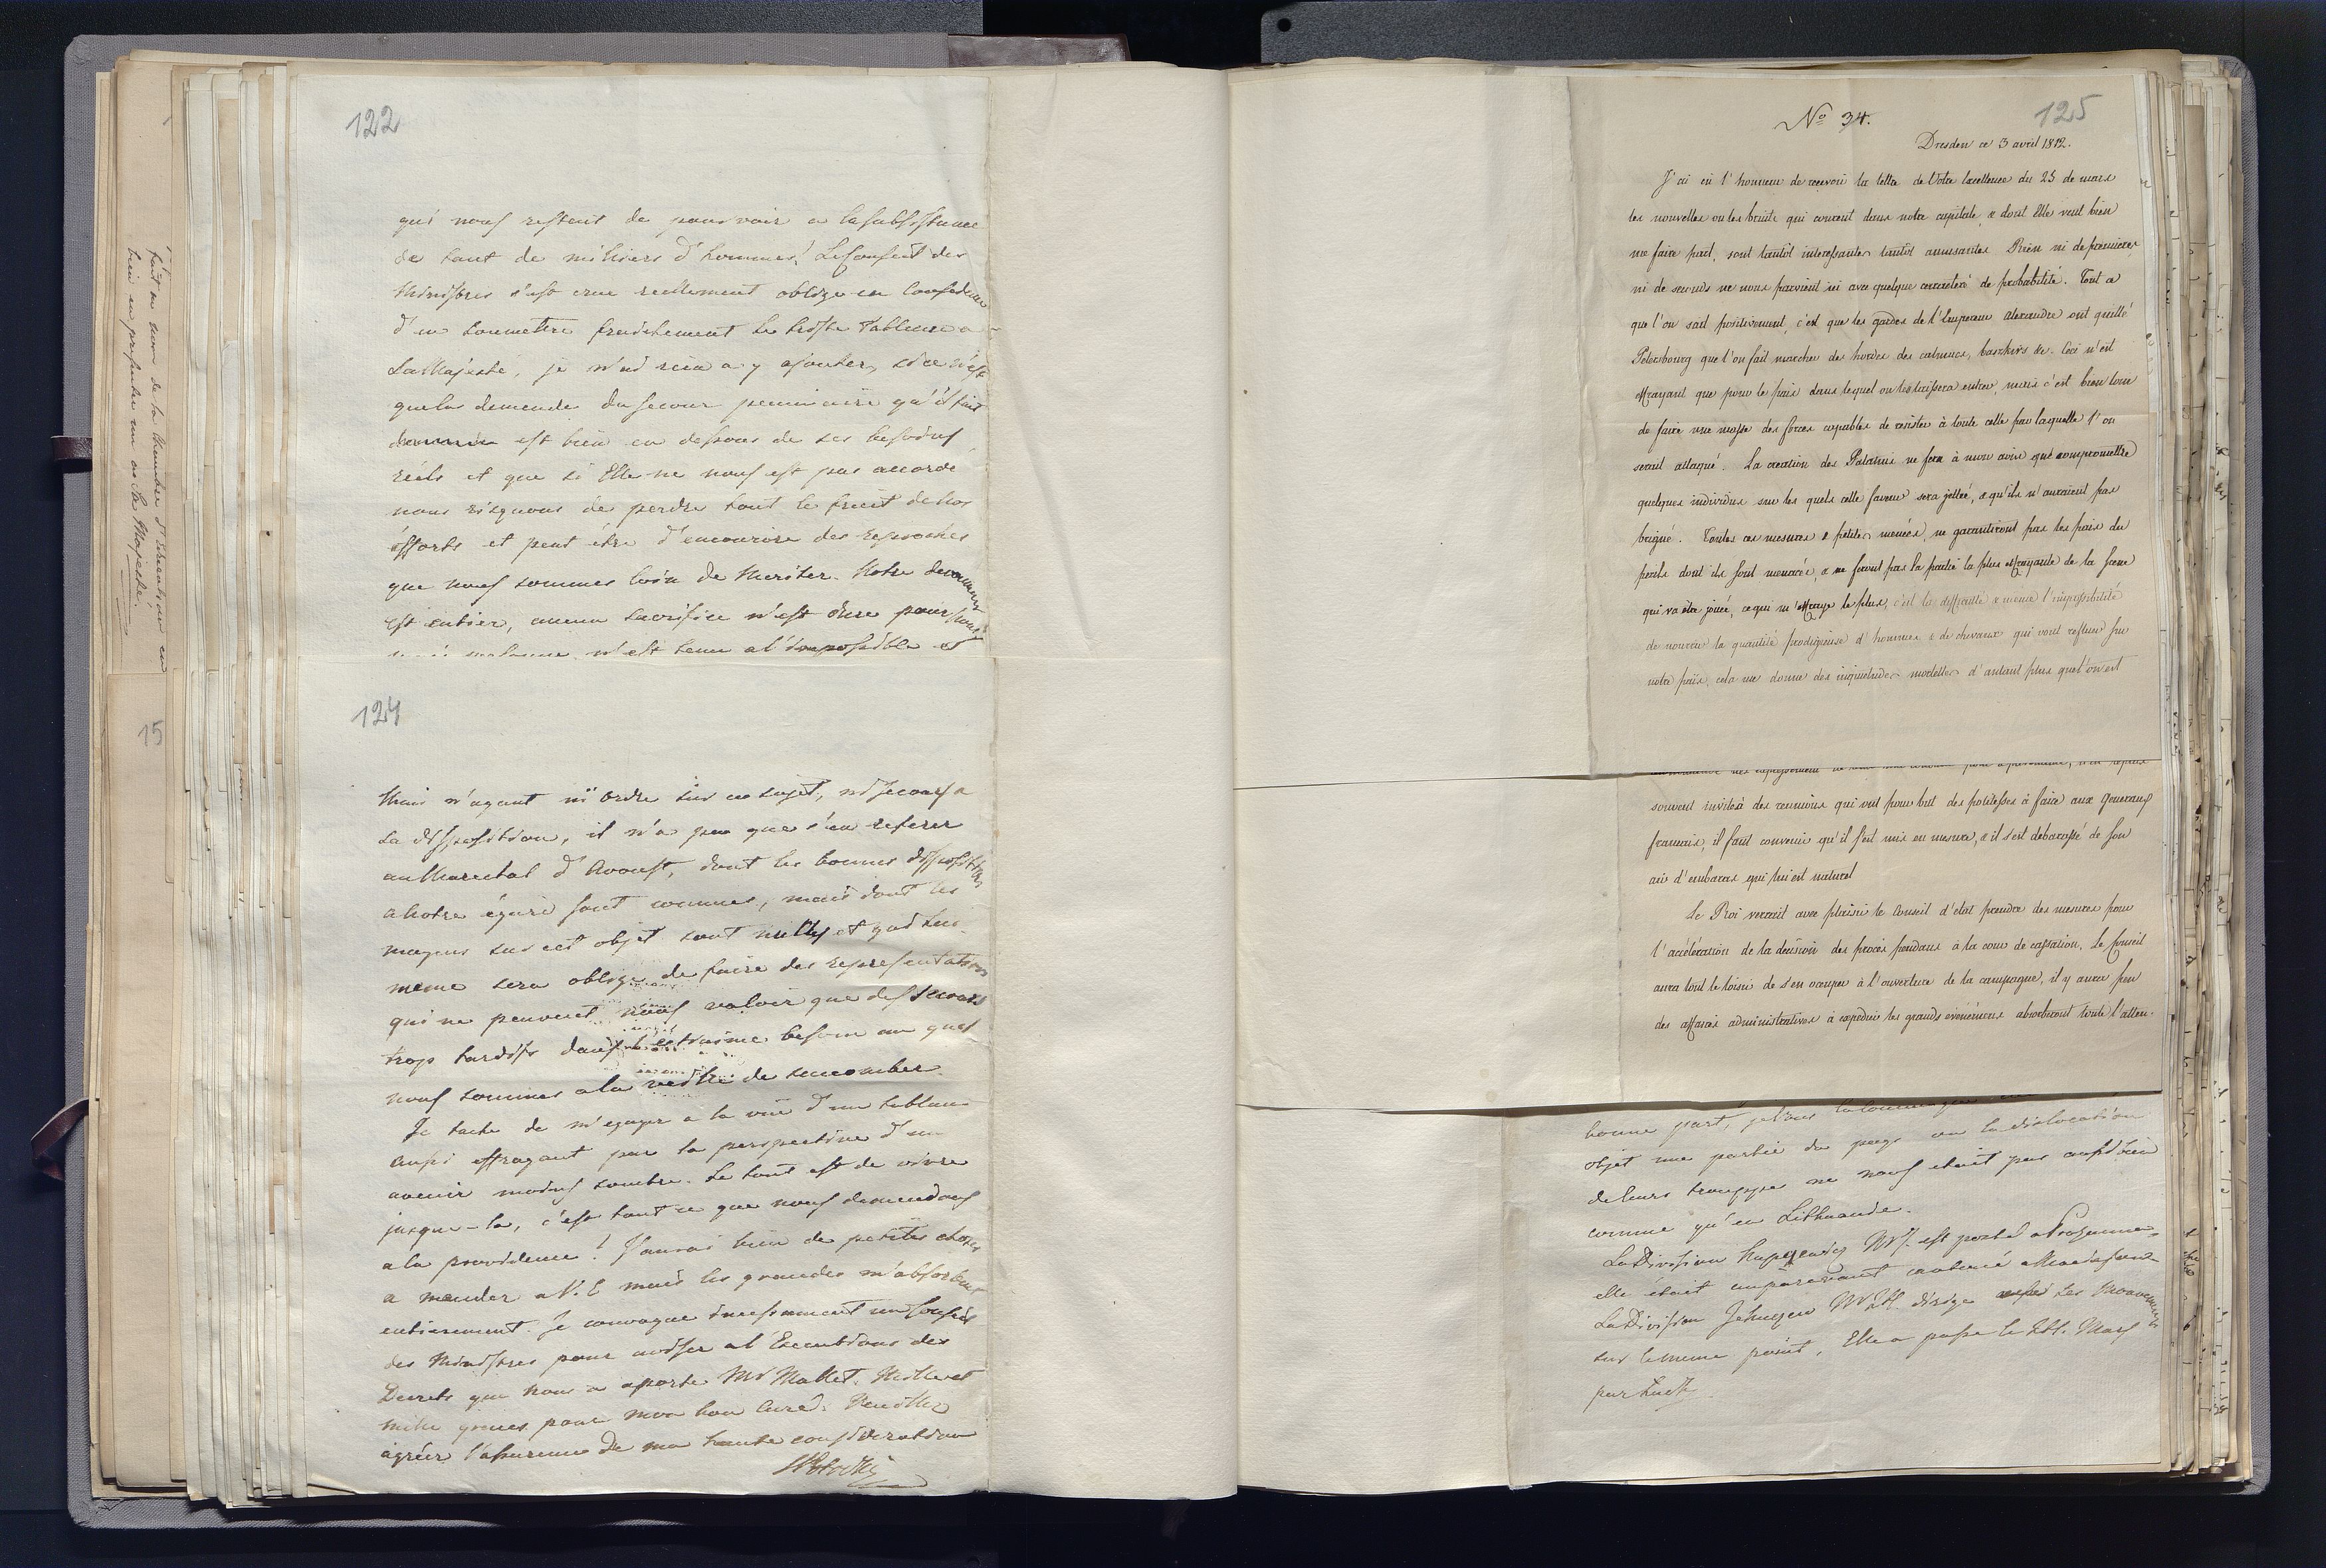 122
qui nous restent de pourvoir a la subsistance
de tant de milliers d'hommes! Le Conseil des
Ministres s'est crue reellement obligé en Conscience
d'en soumettre franchement le triste Tableau a
Sa Majesté, je n'ai rien a y ajouter, si ce n'est
que la demande du secour pecuniaire qu'il fait
est bien en dessous de ses besoins
réels et que si Elle ne nous est pas accordé
nous risquons de perdre tout le fruit de nos
éfforts et peut être d'encourir des reproches
que nous sommes loin de meriter. Notre devouement
est entier, aucun sacrifice n'est dure pour nous
n'est tenu a l'impossible et
124
Mais n'ayant ni ordre sur ce sujet, ni secours a
sa disposition, il n'a pu que s'en referer
au Marechal d'Avoust, dont les bonnes dispositions
a notre égard sont connues, mais dont les
moyens sur cet objet sont nulles et qui lui
meme sera obligé de faire des representations
qui ne peuvent nous valoir que des secours
trop tardifs dans l'extreme besoin au quel
nous sommes a la veille de succomber.
Je tache de m'egayer a la vüe d'un tableau
aussi effrayant par la perspective d'un
avenir moins sombre. Le tout est de vivre
jusque-la, c'est tout ce que nous demandons
a la providence! J'aurai bien de petites choses
a mander a V. E mais les grandes m'absorbent
entierement. Je convoque incessament un Conseil
des Ministres pour aviser a l'Execution des
Decrets que nous a aporté Mr Mallet. Mille et
mille graces pour mon bon Curé. Veuillez
agréer l'assurance de ma haute consideration
SPotocki
fait au nom de la Chambre d'
bien en presenter un a Sa Majesté.
15
125
No 34.
Dresden ce 3 avril 1812.
J'ai eü l'honneur de recevoir la lettre de Votre Excellence du 25 de mars
les nouvelles ou les bruits qui courent dans notre capitale, & dont Elle veut bien
me faire part, sont tantôt interessantes tantôt amusantes. Rien ni de premieres
ni de seconds ne nous parvient ici avec quelque caractere de probabilité. Tout a
que l'on sait positivement, c'est que les gardes de l'Empereur Alexandre ont quitté
Petersbourg que l'on fait marcher des hordes des calmucs, baszkirs &c. Ceci n'est
effrayant que pour le païs dans lequel on les laissera entrer, mais c'est bien loin
de faire une masse des forces capables de resister à toute celle par laquelle l'on
serait attaqué. La creation des Palatins ne fera à mon avis que compromettre
quelques individus sur les quels cette faveur sera jettée, & qu'ils n'auraient pas
brigué. Toutes ces mesures & petites menées, ne garantiront pas les païs du
perils dont ils sont menacés, & ne feront pas la partie la plus effrayante de la scene
qui va être jouée, ce qui m'effraye le plus, c'est la difficulté & meme l'impossibilité
de nourrir la quantité prodigieuse d'hommes & de chevaux qui vont refluer sur
notre païs, cela me donne des inquietudes mortelles d'autant plus que l'on est
souvent invité à des reunions qui ont pour but des politesses à faire aux Generaux
francais, il faut convenir qu'il s'est mis en mesure, & il s'est debarassé de son
air d'embaras qui lui est naturel
Le Roi verrait avec plaisir le Conseil d'etat prendre des mesures pour
l'acceleration de la decision des procès pendans à la cour de cassation. Le Conseil
aura tout le loisir de s'en occuper à l'ouverture de la campagne, il y aura peu
des affaires administratives à expedier les grands evènemens absorberont toute l'atten-
bonne part,
objet une partie du pays ou la dislocation
de leurs trouppes ne nous etait pas aussi bien
connue qu'en Lithuanie.
La Division
elle étoit auparavant
La Division dirige ses Mouvemens
sur le meme point, Elle a passé le Mars
par Luck